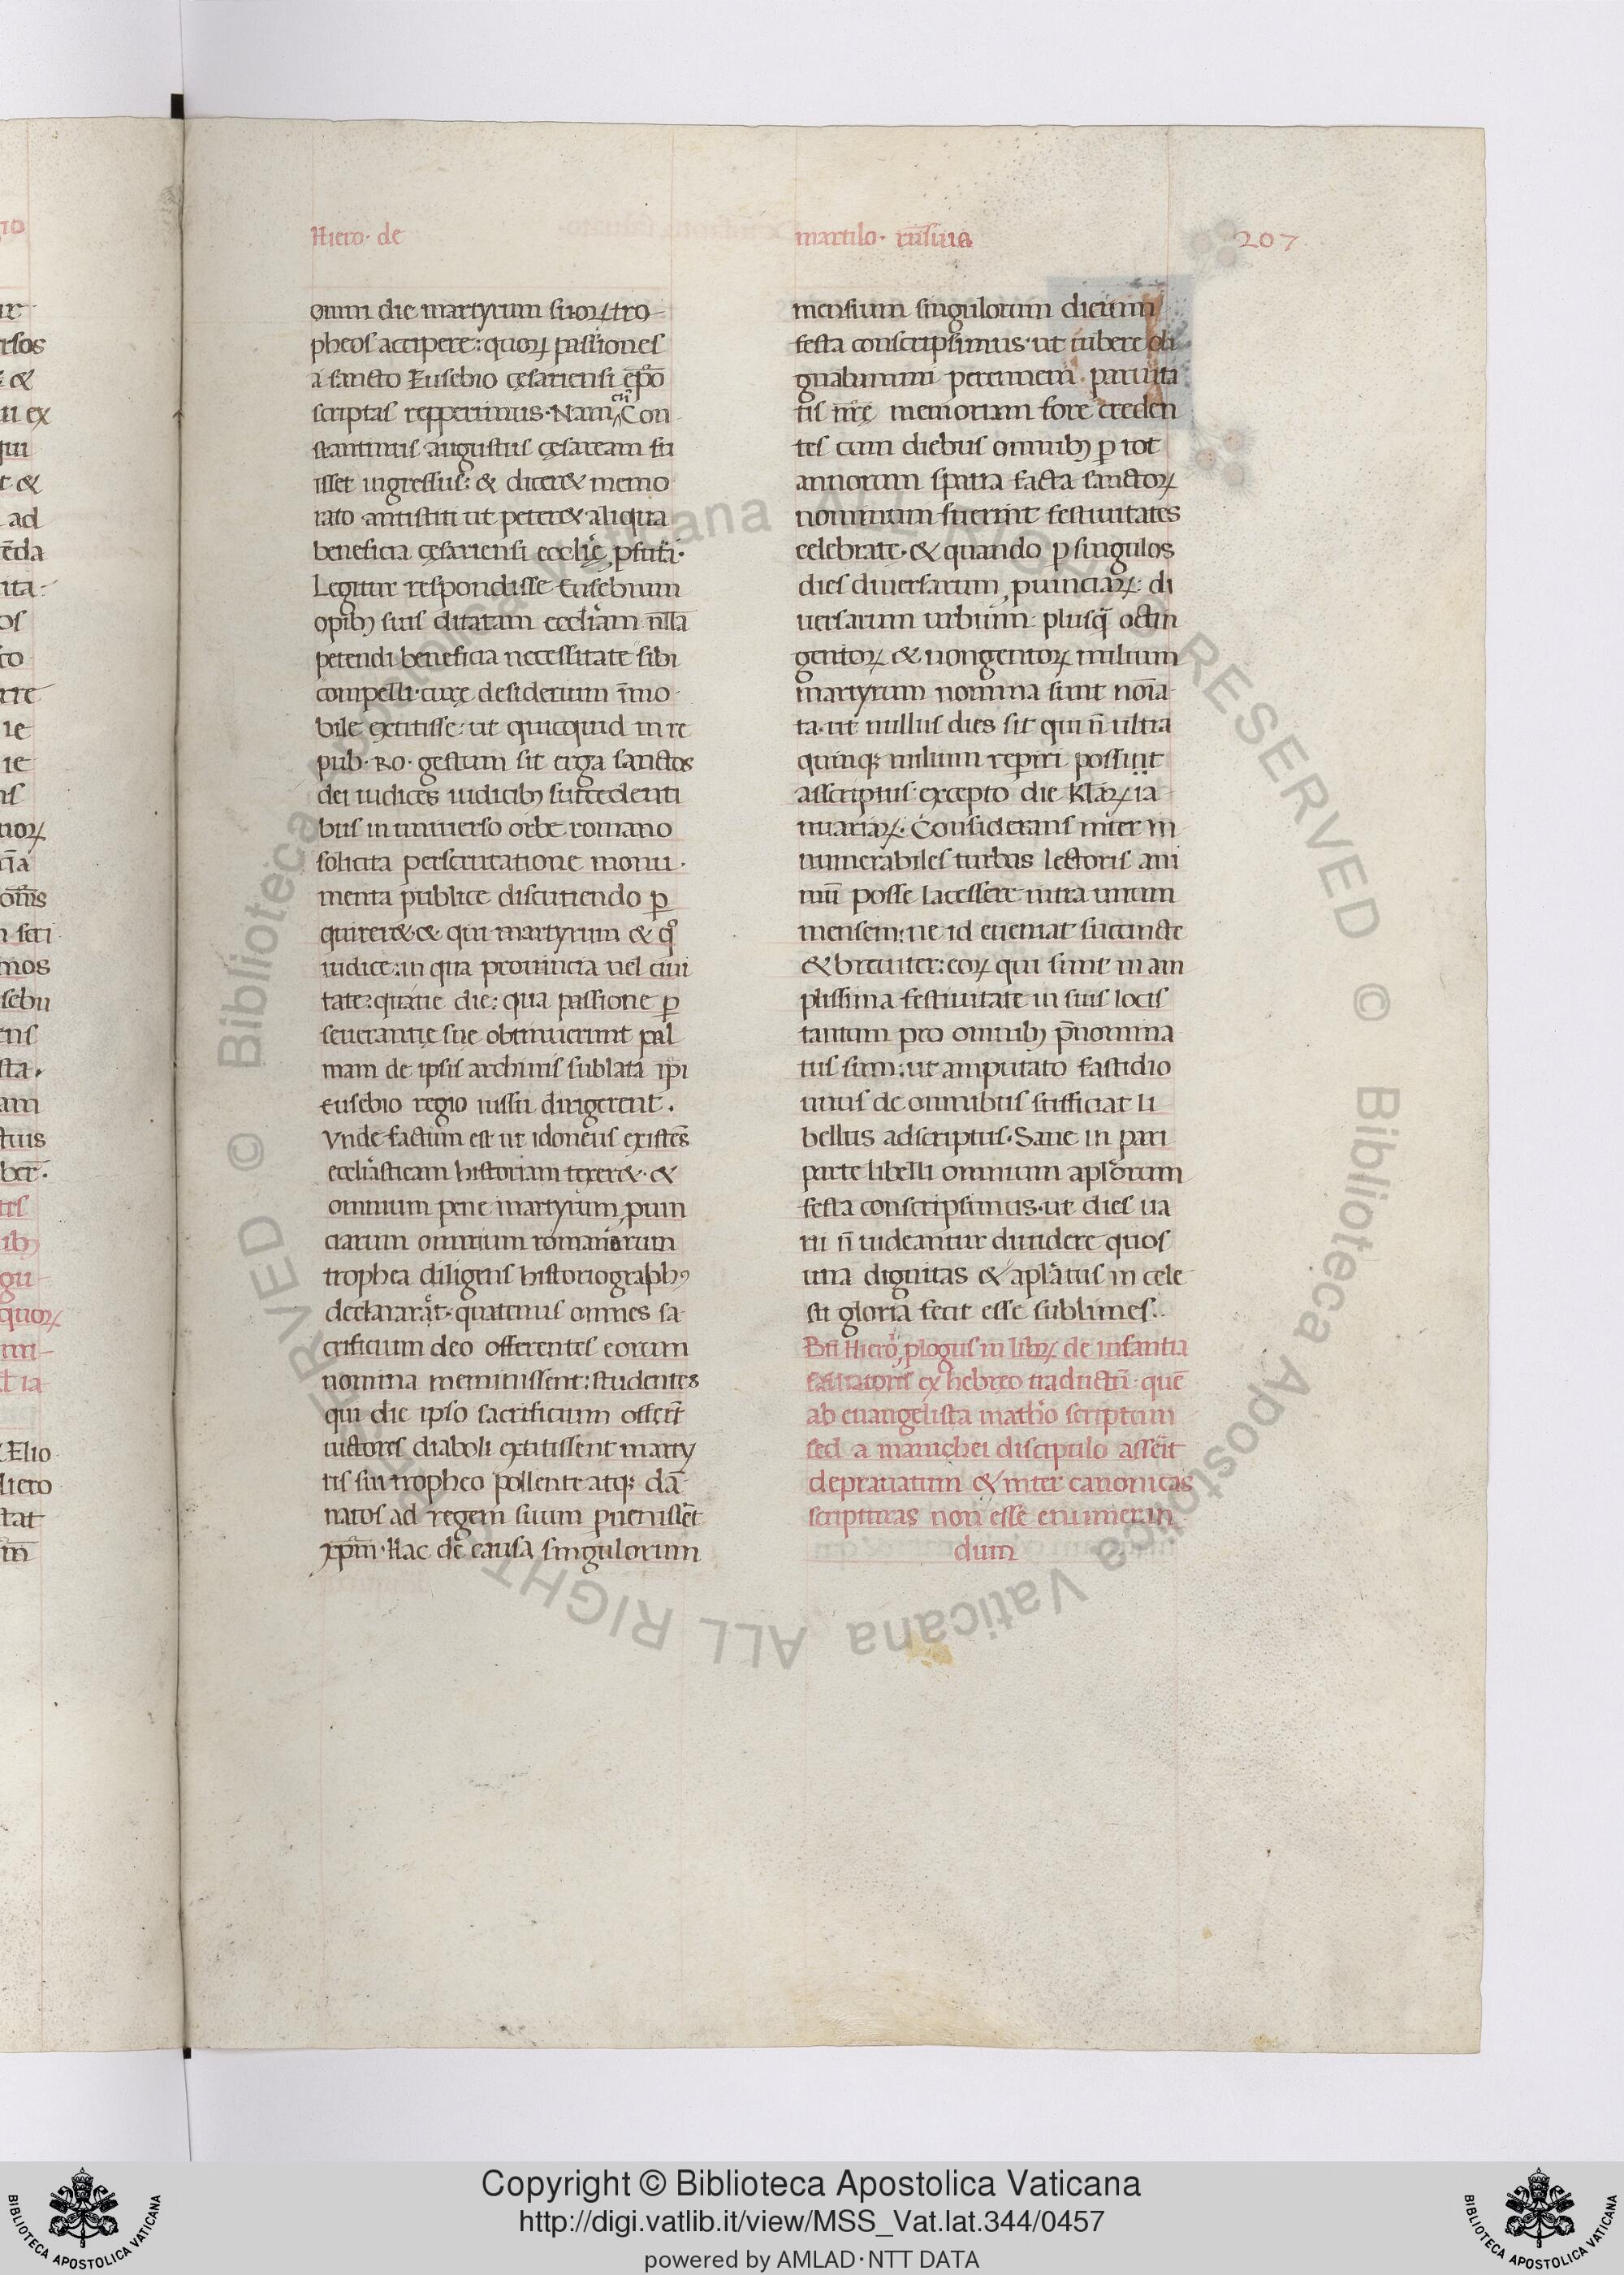 Hiero· de
martilo· rn̄suua
207
onim die martyrum suoꝝ tro-
pheos accipere: quoꝝ passiones
a sancto Eusebio cęsariensi ep̄o
scriptas repperimus· Nam cū Con
stantinus augustus cęsaream fu
isset ingressus: & diceret memo
rato antistiti ut peteret aliqua
beneficia cęsariensi eccl̄ię ꝓfutura·
Legitur respondisse Eusebium
opibꝫ suis ditatam eccl̄iam nulla
petendi beneficia necessitate sibi
compelli· curę desiderium īmo
bile extitisse: ut quicquid in re
pub· Ro· gestum sit erga sanctos
dei iudices iudicibꝫ succedenti
bus in universo orbe romano
solicita perscrutatione monu·
menta publice discutiendo ꝑ
quireret· & qui martyrum & q°
iudice: in qua provincia vel civi
tate: quave die: qua passione ꝑ
severantię sue obtinuerunt pal
mam de ipsis archivis sublata ipi
Eusebio regio iussu dirigerent.
Unde factum est ut idoneus existēs
eccl̄iasticam historiam texeret· &
omnium pene martyrum ꝓvin
ciarum omnium romanarum
trophea diligens historiographꝰ
declararat· quatenus omnes sa-
crificium deo offerentes eorum
nomina meminissent: studentes
qui die ipso sacrificium offert̄
victores diaboli extitissent marty
ris sui tropheo pollente atqꝫ dā
natos ad regem suum ꝑvenissēt
xp̄m· Hac de causa singulorum
mensium singulorum dierum
festa conscripsimus· ut iubere di
gnabimini perennem parvita
tis nr̄ę memoriam fore creden
tes cum diebus omnibꝫ ꝑ tot
annorum spatia facta sanctoꝝ
nominum fuerint festivitates
celebrate· & quando ꝑ singulos
dies diversarum ꝓvinciaꝝ: di
versarum urbium: plusq̄ octin
gentoꝝ & nongentoꝝ milium
martyrum nomina sunt noīa-
ta· ut nullus dies sit qui n̄ ultra
quinqꝫ milium reperiri possunt
asscriptus· excepto die Klāꝝ ia
nuariaꝝ· Considerans inter in
numerabiles turbas lectoris ani
mū posse lacessere intra unum
mensem: ne id eveniat succincte
& breviter: eoꝝ qui sunt in am
plissima festivitate in suis locis
tantum pro omnibꝫ p̄nomina
tus sum: ut amputato fastidio
unus de omnibus sufficiat li
bellus adscriptus· Sane in pari
parte libelli omnium apl̄orum
festa conscripsimus· ut dies va
rii n̄ videantur dividere quos
una dignitas & apl̄atus in cele
sti gloria fecit esse sublimes·.
Bti Hiero ꝓlogus in libꝝ de infantia
salvatoris ex hebreo traductū: quē
ab evangelista matheo scriptum
sed a manichei discipulo asserit
depravatum & inter canonicas
scripturas non esse enumeran
dum
Copyright © Biblioteca Apostolica Vaticana
http://digi.vatlib.it/view/MSS_Vat.lat.344/0457
powered by AMLAD·NTT DATA